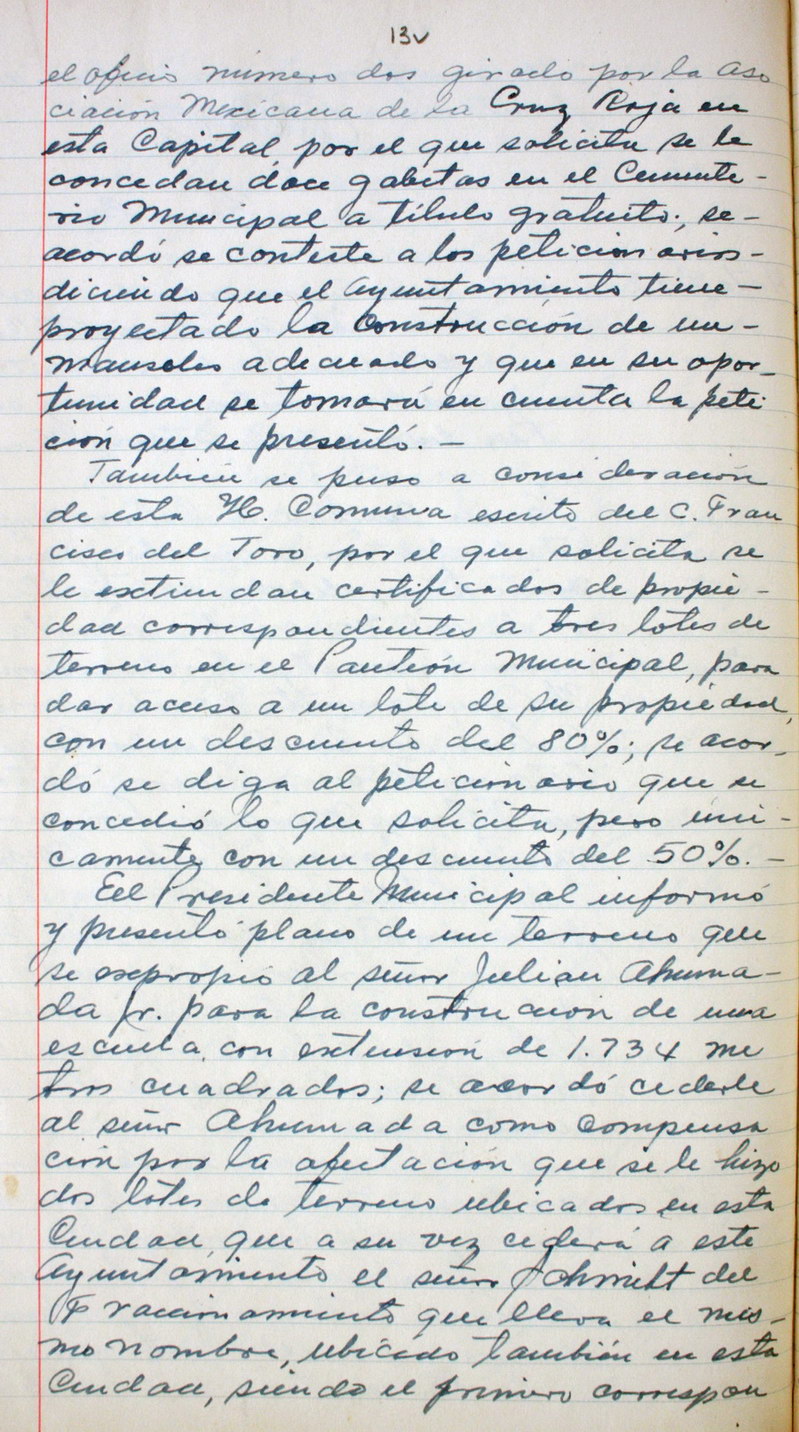 13v
el oficio número dos girado por la Aso
ciación Mexicana de la Cruz Roja en
esta Capital, por el que solicita se le
concedan doce gabetas en el Cemente-
rio Municipal a título gratuito; se-
acordó se conteste a los peticionarios-
diciendo que el Ayuntamiento tiene-
proyectado la Construcción de un-
mausoleo adecuado y que en su opor-
tunidad se tomará en cuenta la peti
ción que se presentó. -
También se puso a consideración
de esta H. Comuna escrito del C. Fran
cisco del Toro, por el que solicita se
le extiendan certificados de propie-
dad correspondientes a tres lotes de
terreno en el Panteón Municipal, para
dar acceso a un lote de su propiedad,
con un descuento del 80%; se acor-
dó se diga al peticionario que se
concedió lo que solicita, pero úni-
camente con un descuento del 50%. -
El Presidente Municipal informó
y presentó plano de un terreno que
se expropió al señor Julian Ahuma-
da Jr. para la construcción de una
escuela, con extensión de 1.734 me
tros cuadrados; se acordó cederle
al señor Ahumada como compensa
ción por la afectación que se le hizo
dos lotes de terreno ubicados en esta
Ciudad, que a su vez cederá a este
Ayuntamiento el señor Schmidt del
Fraccionamiento que lleva el mis-
mo nombre, ubicado también en esta
Ciudad, siendo el primero correspon